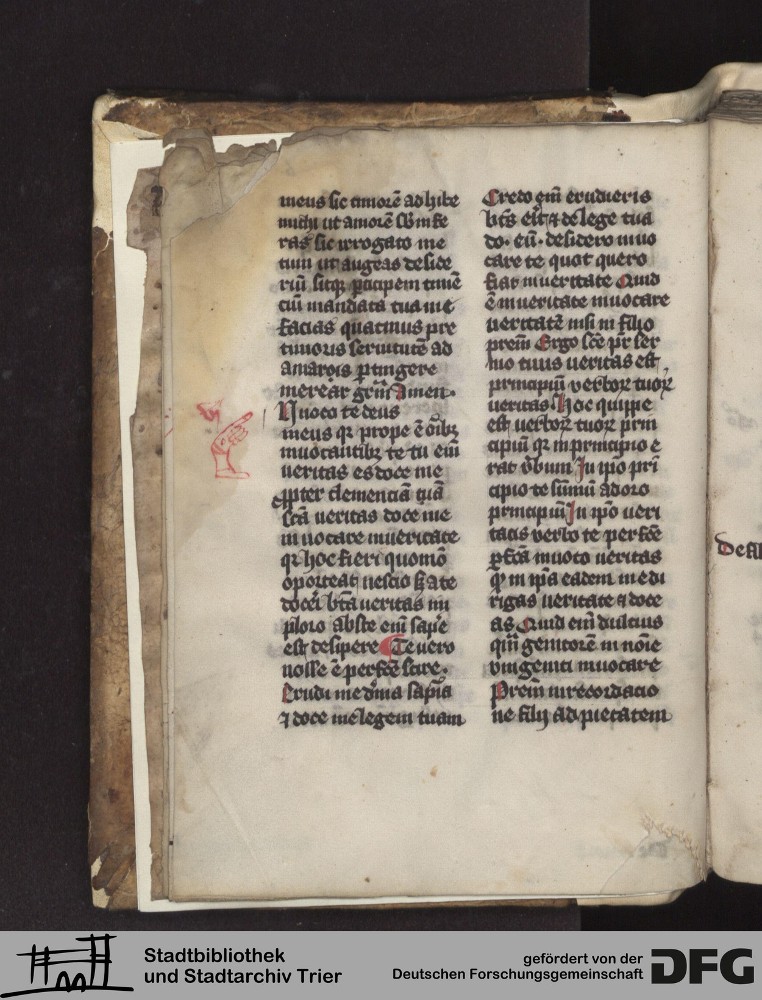 meus sic timorē adhibe
michi ut amorē ſb infe
ras sic irrogato me
tum ut augeas deside
riū sitqꝫ pͥncipem timē
ciū mandata tua me
facias quatinus pre
timoris seruitutē ad
amaroīs pertingere
merear grm̄ Amen·
Nuoco te deus
meus qꝛ prope ē oībꝫ
inuocantibꝫ te tu eim̄
ueritas es doce me
ꝓpter clemenciā tuā
scā ueritas doce me
inuocare inueritate
qꝛ hoc fieri quomō
oporteat nescio sꝫ a te
docei bt̄a ueritas im
ploro abs te eim̄ sap̄e
est desipere Te uero
nosse ē perfcē scire·
Erudi me dm̄a sapīa
⁊ doce me legem tuam
Credo eim̄ erudieris
bt̄s eit̄ ⁊ de lege tua
do· eū· desidero inuo
care te quot quero
fiat inueritate Quid
ē inueritate inuocare
ueritatē nisi in filio
prem̄ Ergo scē pr̄ ser
mo tuus ueritas est
principiū verboꝝ tuoꝝ
ueritas Hoc quippe
est uerboꝝ tuoꝝ prin
cipiū qꝛ in principio e
rat v̄bum In ipō pri
cipio te sūmū adoro
principiū In ip̄o ueri
tatis verbo te perfcē
ꝑfcā inuoco ueritas
qͦ in ip̄a eadem me di
rigas ueritate ⁊ doce
as Quid eim̄ dulcius
qm̄ genitorē in noīe
vnigeniti inuocare
Prem̄ in recordacio
ne filij ad pietatem
Stadtbibliothek
und Stadtarchiv Trier
gefördert von der
Deutschen Forschungsgemeinschaft
DFG